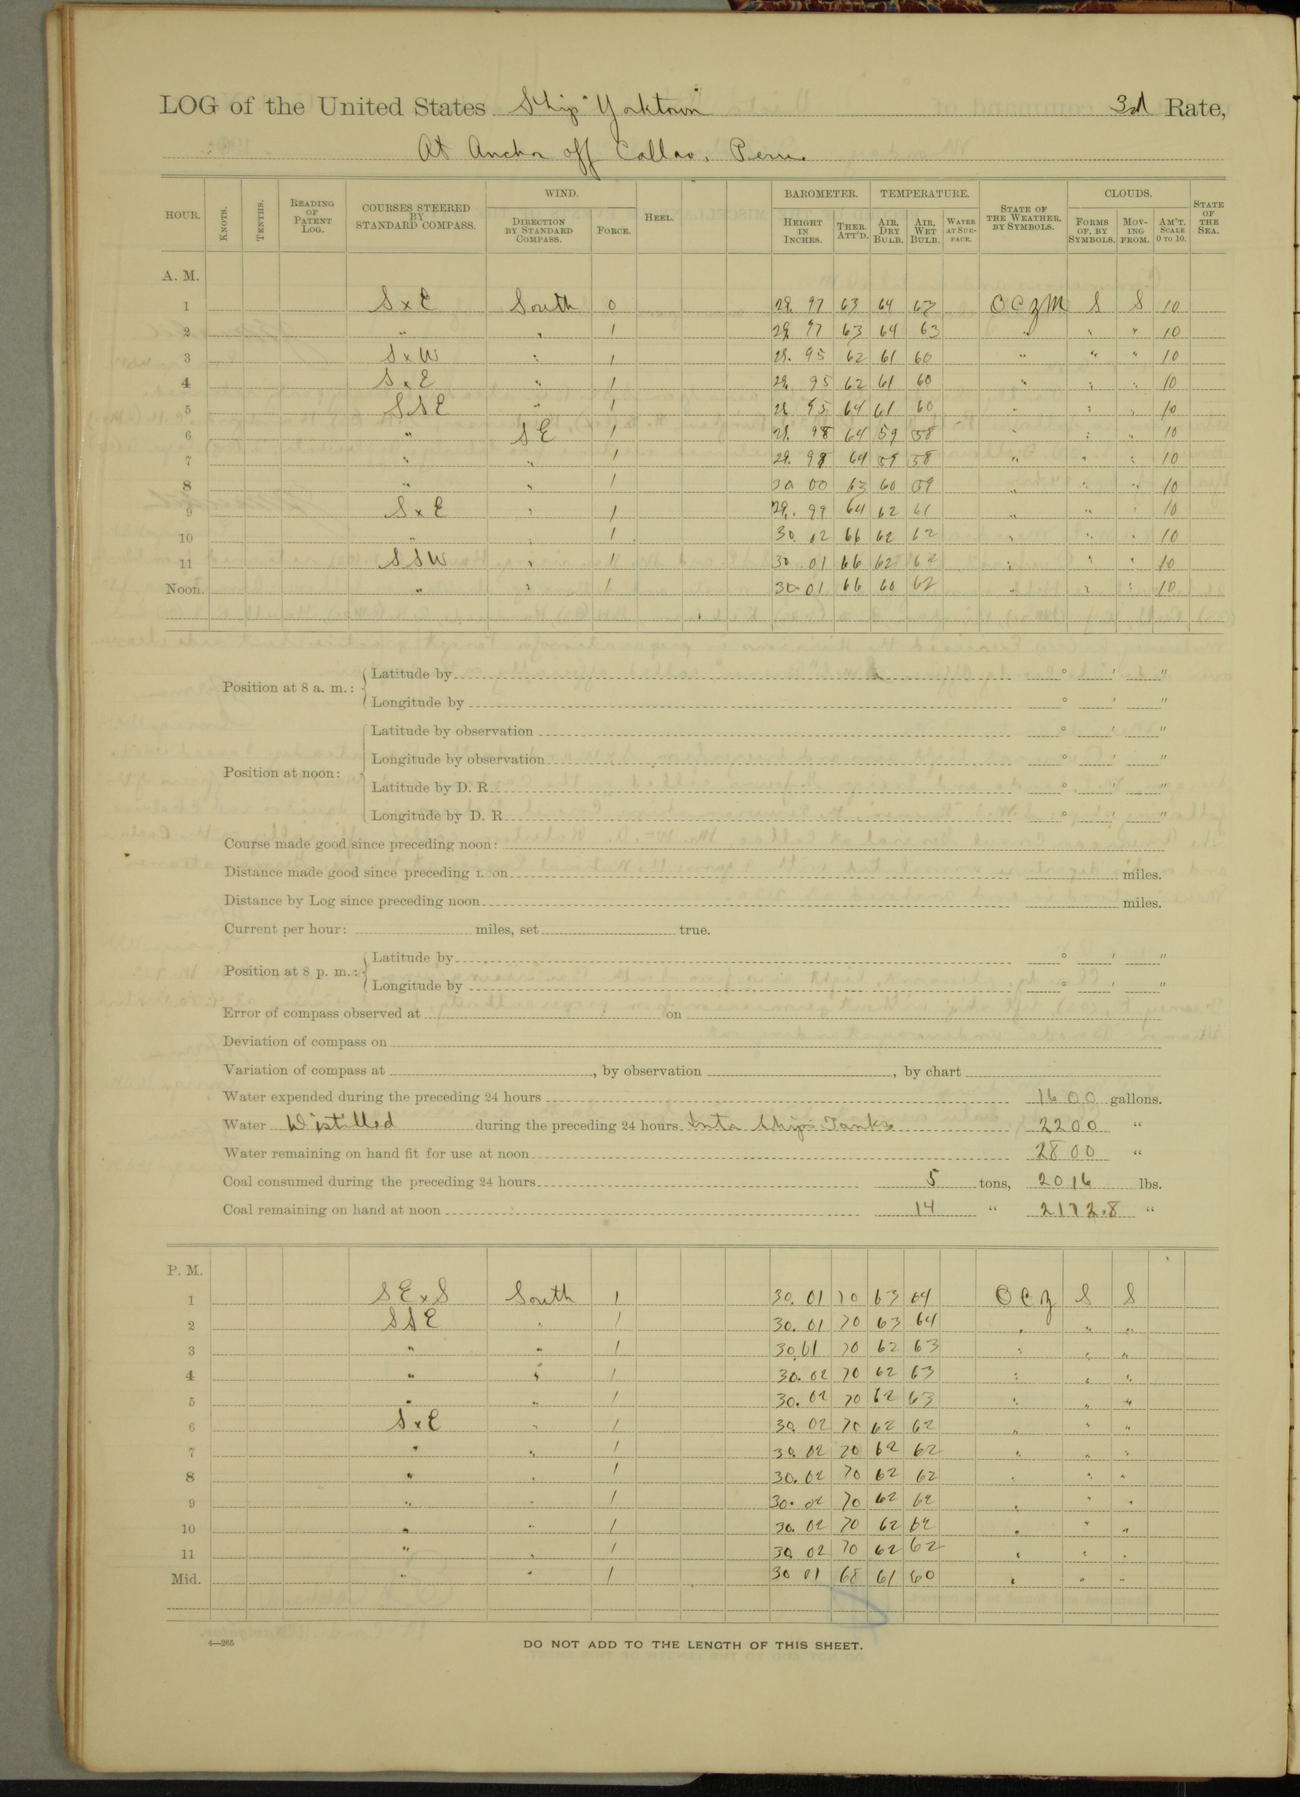 LOG of the United States Ship "Yorktown" 3rd Rate,
At Anchor off Callao, Peru.
HOUR. KNOTS. TENTHS. READING OF PATENT LOG. COURSES STEERED BY STANDARD COMPASS. WIND. DIRECTION BY STANDARD COMPASS. FORCE. HEEL. BAROMETER. HEIGHT IN INCHES. THER. ATT'D. TEMPERATURE. AIR, DRY BULB. AIR, WET BULB. WATER AT SURFACE. STATE OF THE WEATHER, BY SYMBOLS. CLOUDS. FORMS OF, BY SYMBOLS. MOVING FROM. AM'T. SCALE 0 TO 10. STATE OF THE SEA.
A. M.
1 SxE South 0 29.97 63 64 63 OCZM S S 10
2 " " 1 29.97 63 64 63 " " " 10
3 SxW " 1 29.95 62 61 60 " " " 10
4 SxE " 1 29.95 62 61 60 " " " 10
5 SSE " 1 29.95 64 61 60 " " " 10
6 " SE 1 29.98 64 59 58 " " " 10
7 " " 1 29.98 64 59 58 " " " 10
8 " " 1 30.00 63 60 59 " " " 10
9 SxE " 1 29.99 64 62 61 " " " 10
10 " " 1 30.02 66 62 62 " " " 10
11 SSW " 1 30.01 66 62 62 " " " 10
Noon. " " 1 30.01 66 60 62 " " " 10
Position at 8 a. m.: Latitude by ° ' "
Longitude by ° ' "
Position at noon: Latitude by observation ° ' "
Longitude by observation ° ' "
Latitude by D. R. ° ' "
Longitude by D. R. ° ' "
Course made good since preceding noon:
Distance made good since preceding noon miles.
Distance by Log since preceding noon miles.
Current per hour: miles, set true.
Position at 8 p. m.: Latitude by ° ' "
Longitude by ° ' "
Error of compass observed at on
Deviation of compass on
Variation of compass at , by observation , by chart
Water expended during the preceding 24 hours 1600 gallons.
Water Distilled during the preceding 24 hours Into Ships Tanks 2200 "
Water remaining on hand fit for use at noon 2800 "
Coal consumed during the preceding 24 hours 5 tons, 2016 lbs.
Coal remaining on hand at noon 14 " 2172.8 "
P. M.
1 SExS South 1 30.01 70 63 64 OCZ S S
2 SSE " 1 30.01 70 63 64 " " "
3 " " 1 30.01 70 62 63 " " "
4 " " 1 30.02 70 62 63 " " "
5 " " 1 30.02 70 62 63 " " "
6 SxE " 1 30.02 70 62 62 " " "
7 " " 1 30.02 70 62 62 " " "
8 " " 1 30.02 70 62 62 " " "
9 " " 1 30.02 70 62 62 " " "
10 " " 1 30.02 70 62 62 " " "
11 " " 1 30.02 70 62 62 " " "
Mid. " " 1 30.01 68 61 60 " " "
4—265
DO NOT ADD TO THE LENGTH OF THIS SHEET.